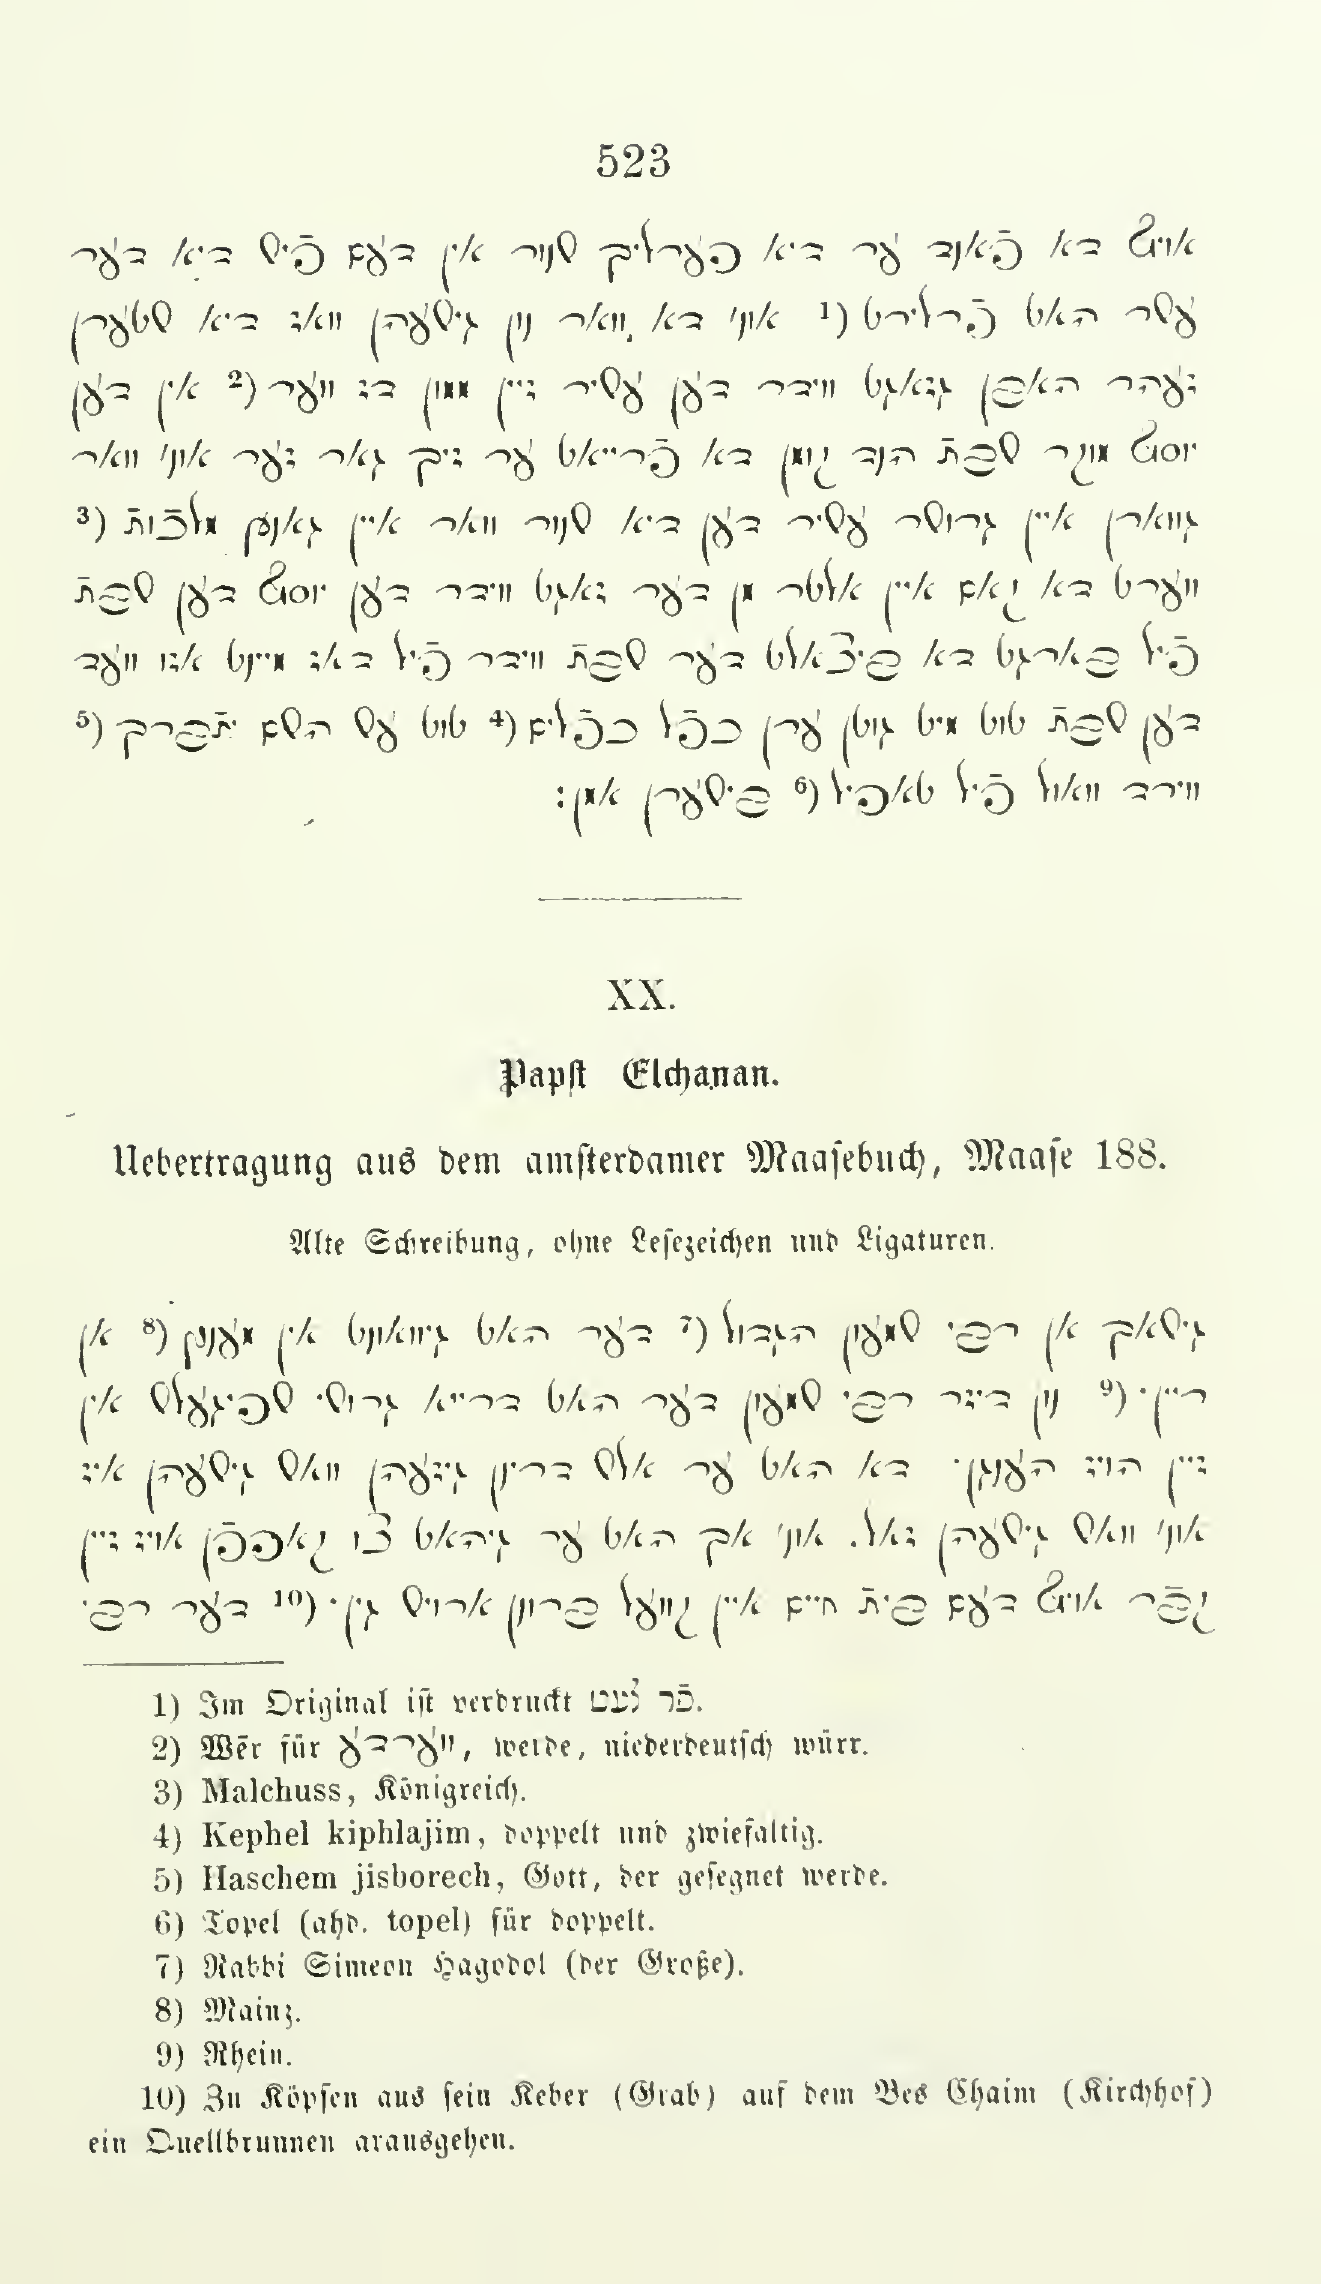 523
אויף דא פֿאנד ער דיא פערליך שנור אין דעם פֿיש דיא דער
עשר האט פֿרלירט (1 אונ׳ דא וואר נון גישעהן וואז דיא שטערן
זעהר האפן גזאגט ווידר דען עשיר זיין ממון דז ווער (2 אין דען
יוסף מוקר שבת הנד קומן דא פֿרייאט ער זיך גאר זער אונ׳ וואר
גווארן איין גרושר עשיר דען דיא שנור וואר איין גאנץ מלכֿותֿ (3
ווערט דא קאם איין אלטר מן דער זאגט ווידר דען יוסף דען שבתֿ
פֿיל פארגט דא פיצאלט דער שבתֿ ווידר פֿיל דאז מיינט אזו ווער
דען שבתֿ טוט מיט גוטן ערן כפֿל כפֿלים (4 טוט עש השם יתֿברך (5
ווירד וואול פֿיל טאפיל (6 פישערן אמן:
XX.
Papst Elchanan.
Uebertragung aus dem amsterdamer Maasebuch, Maase 188.
Alte Schreibung, ohne Lesezeichen und Ligaturen.
גישאך אן רבי שמעון הגדול (7 דער האט גיוואונט אין מענץ (8 אן
ריין· (9 נון דיזר רבי שמעון דער האט דרייא גרושי שפיגעלש אין
זיין הויז העננן· דא האט ער אלש דרינן גיזעהן וואש גישעהן איז
אונ׳ וואש גישעהן זאל. אונ׳ אך האט ער גיהאט צו קאפפֿן אויז זיין
קבֿר אויף דעם ביתֿ חיים איין קוועל פרונן ארויש גין· (10 דער רבי
1) Im Original ist verdruckt פֿר לעט.
2) Wēr für ווערדע, werde, niederdeutsch würr.
3) Malchuss, Königreich.
4) Kephel kiphlajim, doppelt und zwiefaltig.
5) Haschem jisborech, Gott, der gesegnet werde.
6) Topel (ahd. topel) für doppelt.
7) Rabbi Simeon Hagodol (der Große).
8) Mainz.
9) Rhein.
10) Zu Köpfen aus sein Keber (Grab) auf dem Bes Chaim (Kirchhof)
ein Quellbrunnen arausgehen.